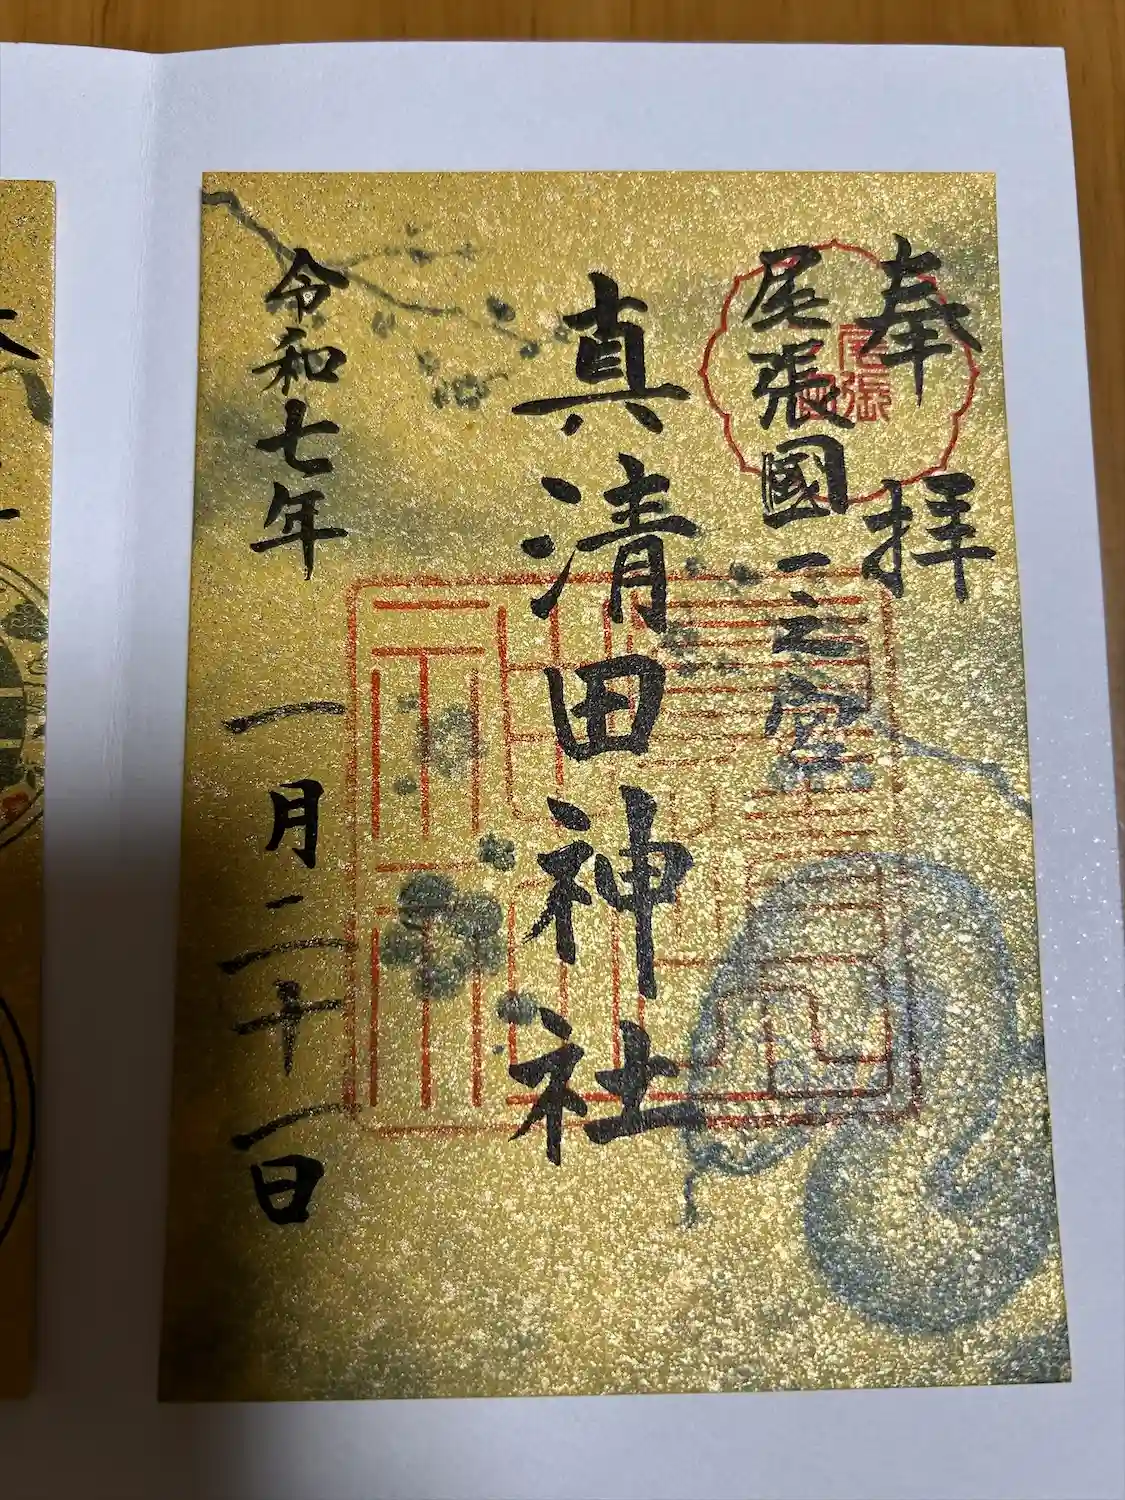 奉拝
尾張國一之宮
真清田神社
令和七年一月二十一日
尾張